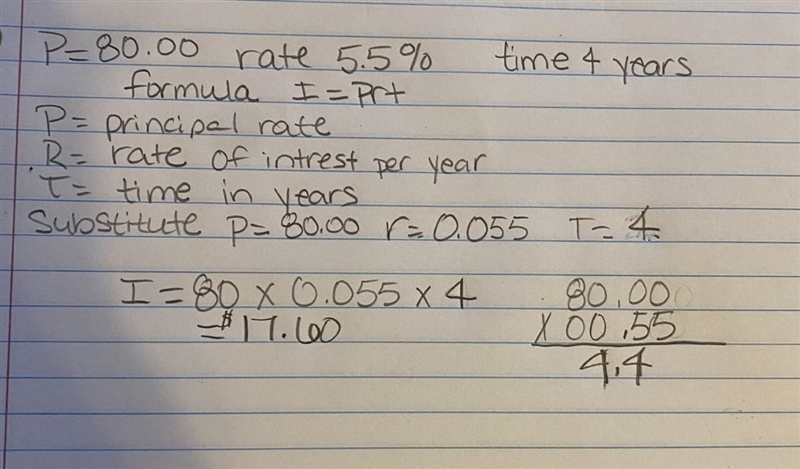 P=80.00 rate 5.5% time 4 years
formula I=Prt
P= principal rate
R= rate of intrest per year
T= time in years
Substitute P=80.00 r=0.055 T=4
I=80 x 0.055 x 4 80.000
=$17.60 x 00.55
4.4